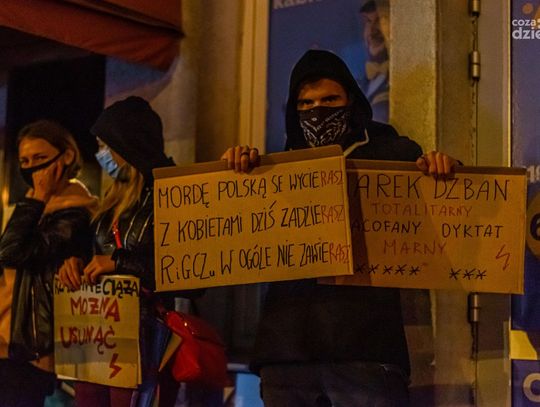 coza
dzie
MORDĘ POLSKĄ SE WYCIERASZ
Z KOBIETAMI DZIŚ ZADZIERASZ
RiGCZu W OGÓLE NIE ZAWIERASZ
AREK DZBAN
TOTALITARNY
ACOFANY DYKTAT
MARNY
***** ***
MOŻNA
USUNĄĆ